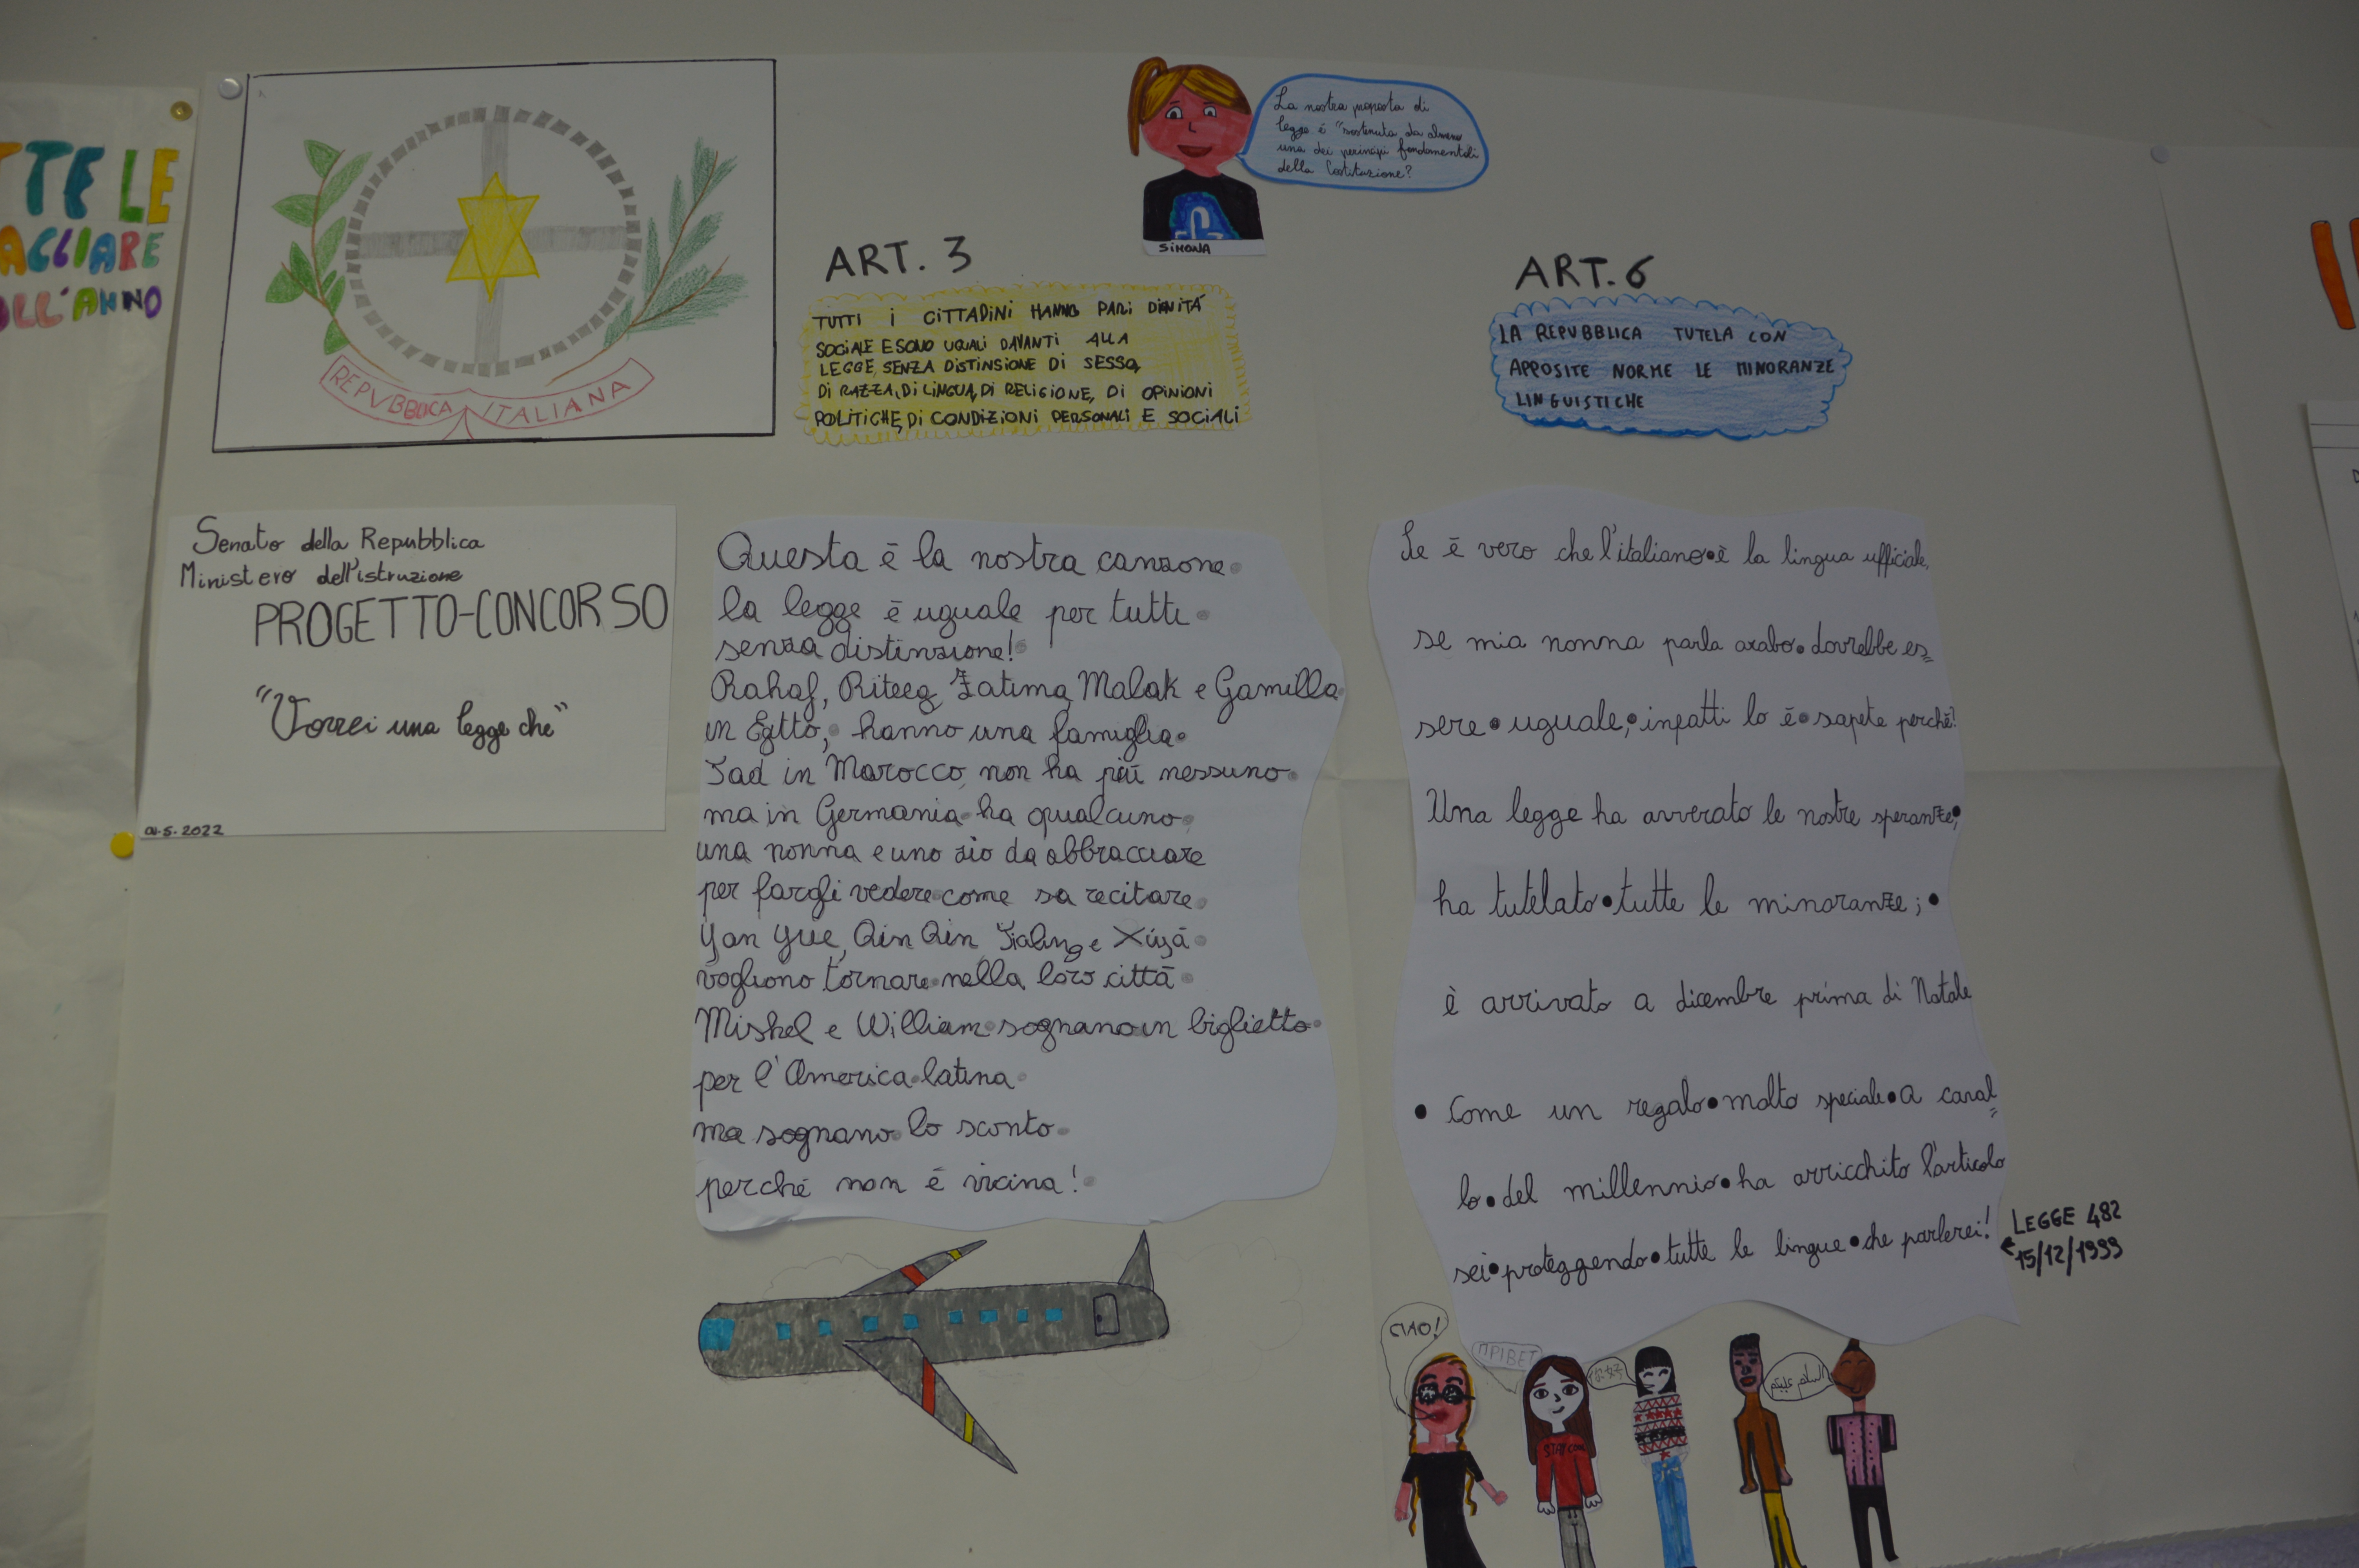 TTE LE
AGLIARE
OLL'ANNO
REPVBBLICA ITALIANA
La nostra proposta di
legge è "sostenuta da almeno
una dei principi fondamentali
della Costituzione?
SIMONA
ART. 3
TUTTI I CITTADINI HANNO PARI DIGNITÀ
SOCIALE E SONO UGUALI DAVANTI ALLA
LEGGE, SENZA DISTINSIONE DI SESSO,
DI RAZZA, DI LINGUA, DI RELIGIONE, DI OPINIONI
POLITICHE, DI CONDIZIONI PERSONALI E SOCIALI
ART. 6
LA REPUBBLICA TUTELA CON
APPOSITE NORME LE MINORANZE
LINGUISTICHE
Senato della Repubblica
Ministero dell'istruzione
PROGETTO-CONCORSO
"Vorrei una legge che"
01.5.2022
Questa è la nostra canzone
la legge è uguale per tutti
senza distinzione!
Rahaf, Fatima, Malak e Gamilla
in Egitto, hanno una famiglia
Jad in Marocco, non ha più nessuno
ma in Germania ha qualcuno,
una nonna e uno zio da abbracciare
per fargli vedere come sa recitare
Yan Yue, Qin Qin, Jialing e
vogliono tornare nella loro città
Mishel e William sognano un biglietto
per l'America latina
ma sognano lo sconto
perché non è vicina!
Se è vero che l'italiano è la lingua ufficiale,
se mia nonna parla arabo dovrebbe es=
sere uguale, infatti lo è sapete perché?
Una legge ha avverato le nostre speranze,
ha tutelato tutte le minoranze;
è arrivato a dicembre prima di Natale
Come un regalo molto speciale A caval=
lo del millennio ha arricchito l'articolo
sei proteggendo tutte le lingue che parlerei!
LEGGE 482
15/12/1999
CIAO!
ПРІВЕТ
你好
السلام عليكم
STAY COOL